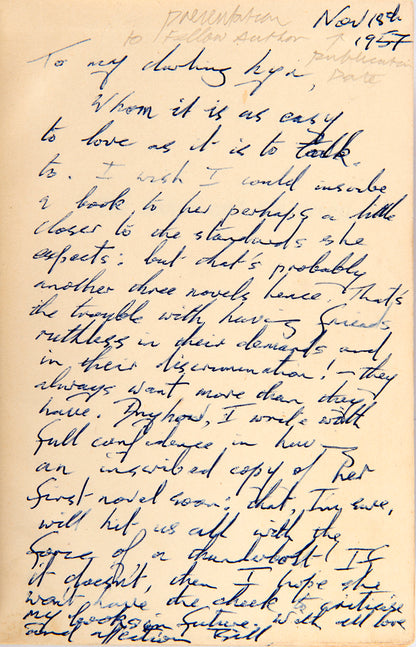 presentation
to Fellow Author
↑
publication
Date
Nov 18th
1957
To my darling Lyn,
Whom it is as easy
to love as it is to talk
to. I wish I could inscribe
a book to her perhaps a little
closer to the standards she
expects: but that's probably
another three novels hence. That's
the trouble with having friends
ruthless in their demands and
in their discrimination! – they
always want more than they
have. Anyhow, I write with
full confidence in having
an inscribed copy of her
first novel soon: that, I'm sure,
will hit us all with the
force of a thunderbolt! If
it doesn't, then I hope she
won't have the cheek to criticise
my books in future. With all love
and affection